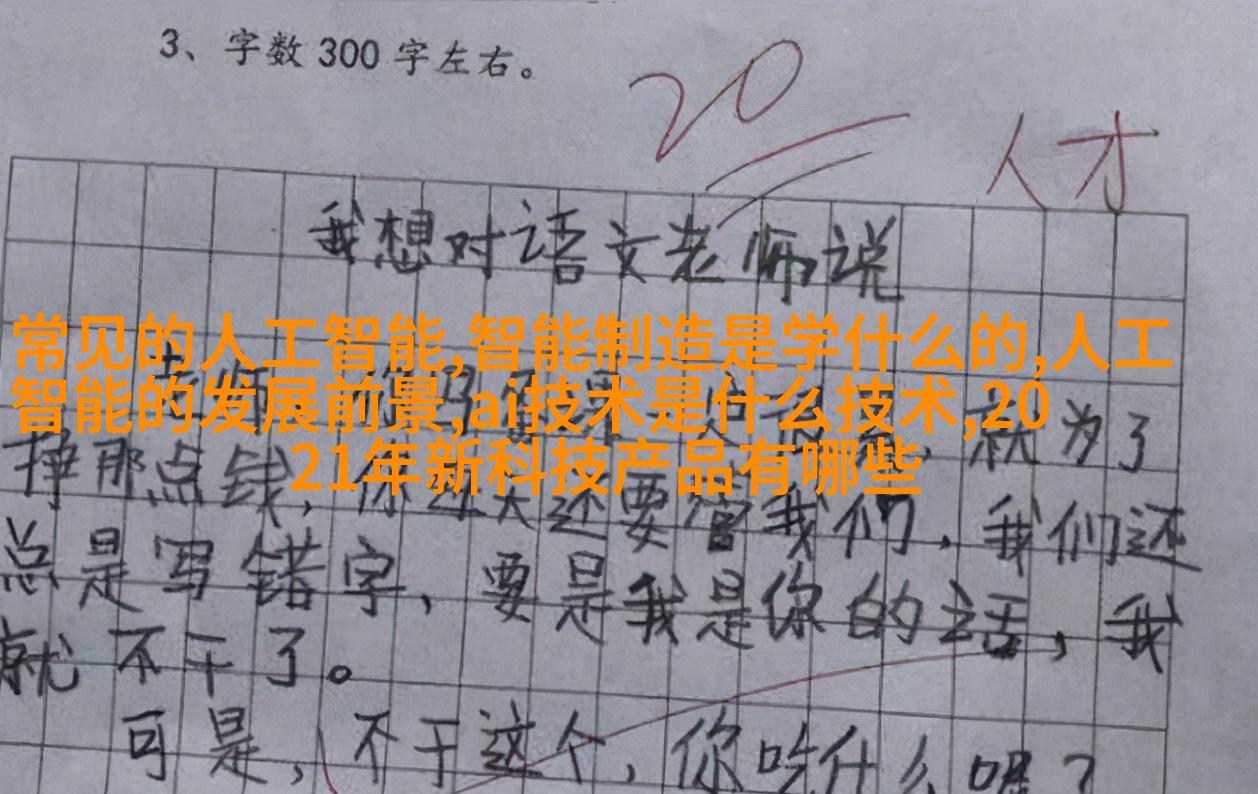 3、字数300字左右。
20
人才
我想对语文老师说
常见的人工智能,智能制造是学什么的,人工
智能的发展前景,ai技术是什么技术,20
21年新科技产品有哪些
就为了
挣那点钱,你 还要管我们,我们还
总是写错字,要是我是你的话,我
就不干了。
可是,不干这个,你吃什么呢?